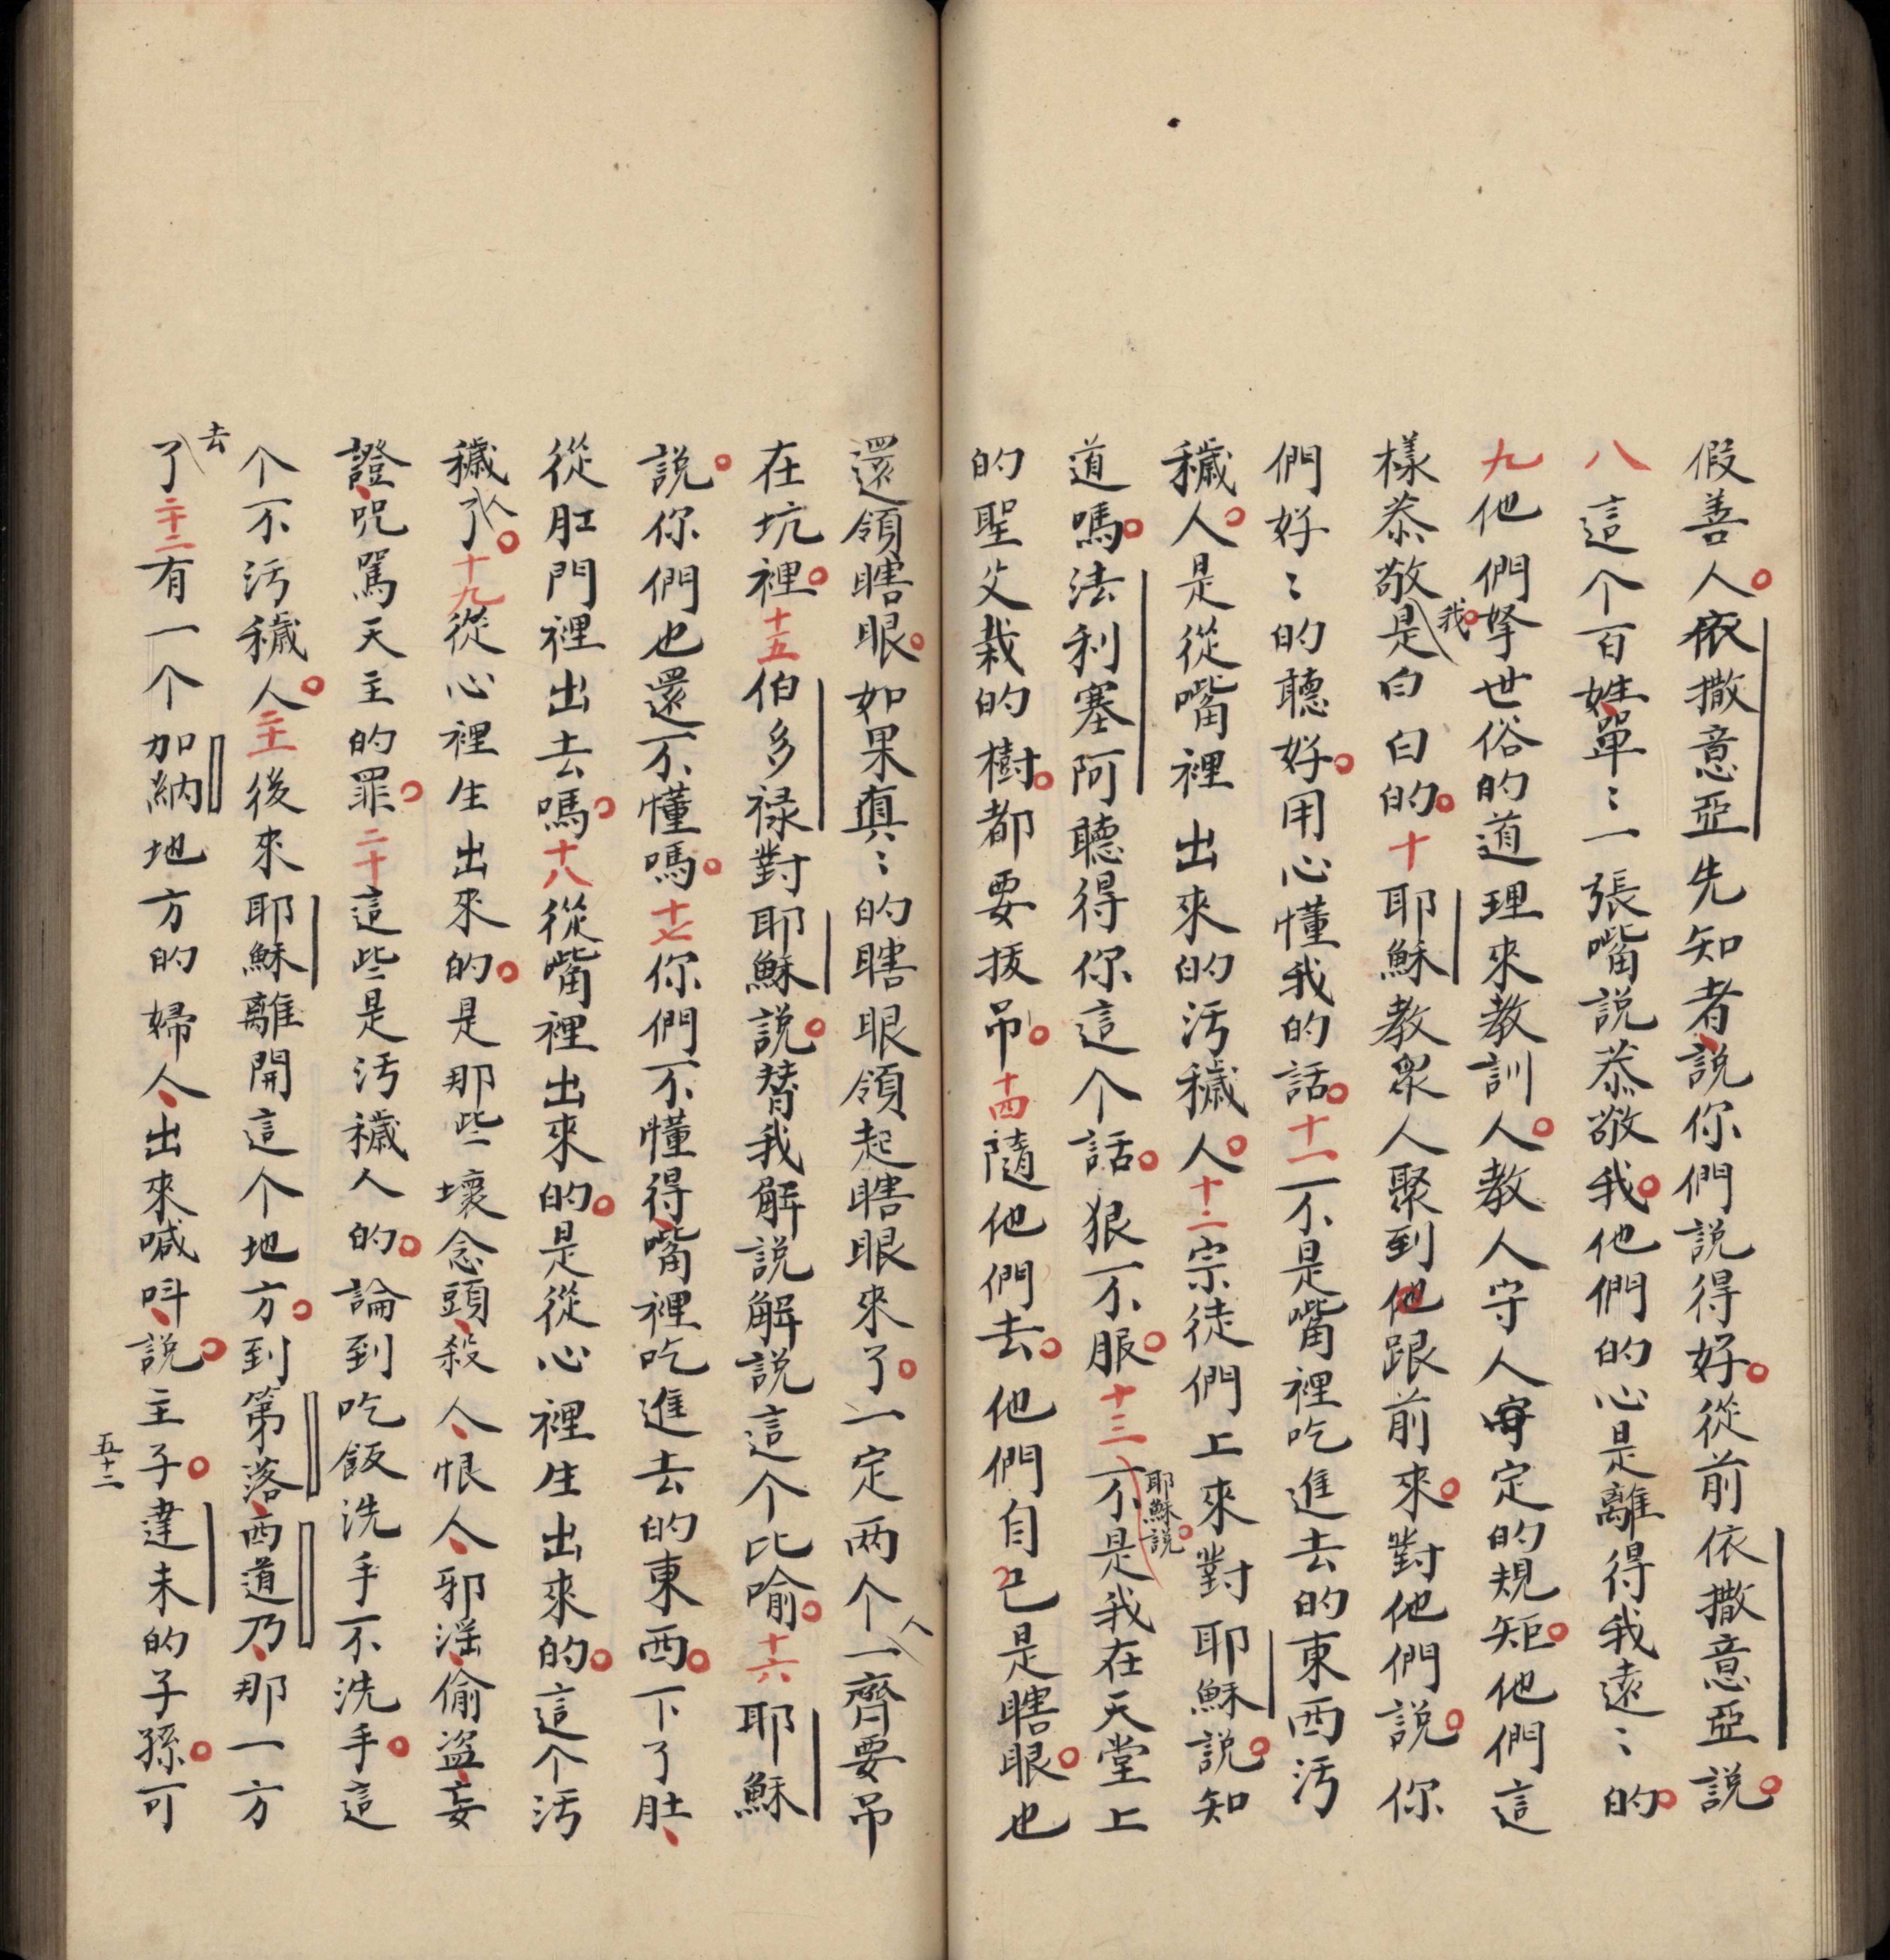 假善人。依撒意亞先知者、說你們說得好。從前依撒意亞說。
八這个百姓、單〻一張嘴說恭敬我。他們的心是離得我遠〻的。
九他們拏世俗的道理來教訓人。教人守人定的規矩。他們這
樣恭敬我。是白白的。十耶穌教衆人聚到他跟前來。對他們說。你
們好〻的聽好。用心懂我的話。十一不是嘴裡吃進去的東西汚
穢人。是從嘴裡出來的汚穢人。十二宗徒們上來對耶穌說。知
道嗎。法利塞阿聽得你這个話。狠不服。十三耶穌說。不是我在天堂上
的聖父栽的樹。都要拔吊。十四隨他們去。他們自己是瞎眼。也
還領瞎眼。如果眞〻的瞎眼領起瞎眼來了。一定两个人一齊要吊
在坑裡。十五伯多禄對耶穌說。替我解說解說這个比喻。十六耶穌
說。你們也還不懂嗎。十七你們不懂得、嘴裡吃進去的東西。下了肚、
從肛門裡出去嗎。十八從嘴裡出來的。是從心裡生出來的。這个汚
穢人了。十九從心裡生出來的。是那些壞念頭、殺人、恨人、邪滛、偷盗、妄
證、咒駡天主的罪。二十這些是汚穢人的。論到吃飯洗手不洗手。這
个不汚穢人。二十一後來耶穌離開這个地方。到第落、西道乃、那一方
去了二十二有一个加納地方的婦人、出來喊呌、說。主子。達未的子孫。可
五十二